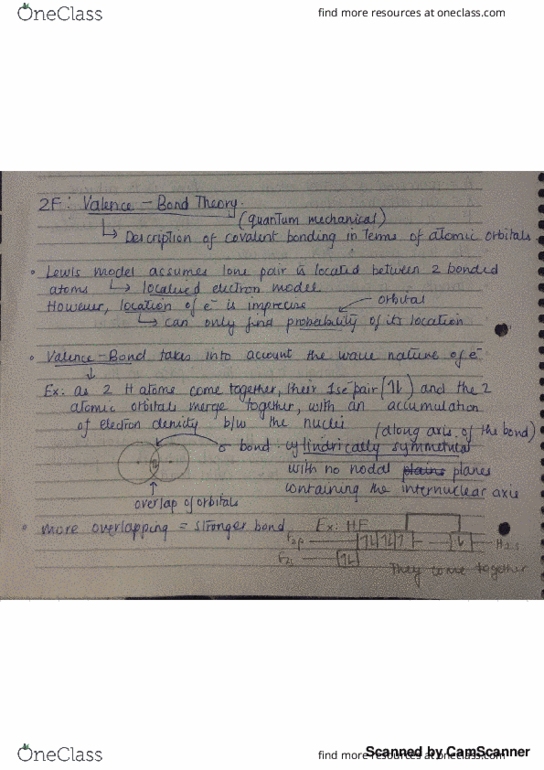 OneClass
find more resources at oneclass.com
2F: Valence - Bond Theory.
(quantum mechanical)
↳ Description of covalent bonding in terms of atomic orbitals
• Lewis model assumes lone pair is located between 2 bonded
atoms ↳ localised electron model.
However, location of e⁻ is imprecise
orbital
↳ can only find probability of its location
• Valence-Bond takes into account the wave nature of e⁻
↓
Ex: as 2 H atoms come together, their 1s e⁻ pair (1L) and the 2
atomic orbitals merge together, with an accumulation
of electron density b/w the nuclei
(along axis of the bond)
σ bond · cylindrically symmetrical
with no nodal plains planes
containing the internuclear axis
overlap of orbitals
• more overlapping = stronger bond
Ex: HF
F2p 1L 1L 1
F2s 1L
They come together
OneClass
find more resources at oneclass.com
Scanned by CamScanner